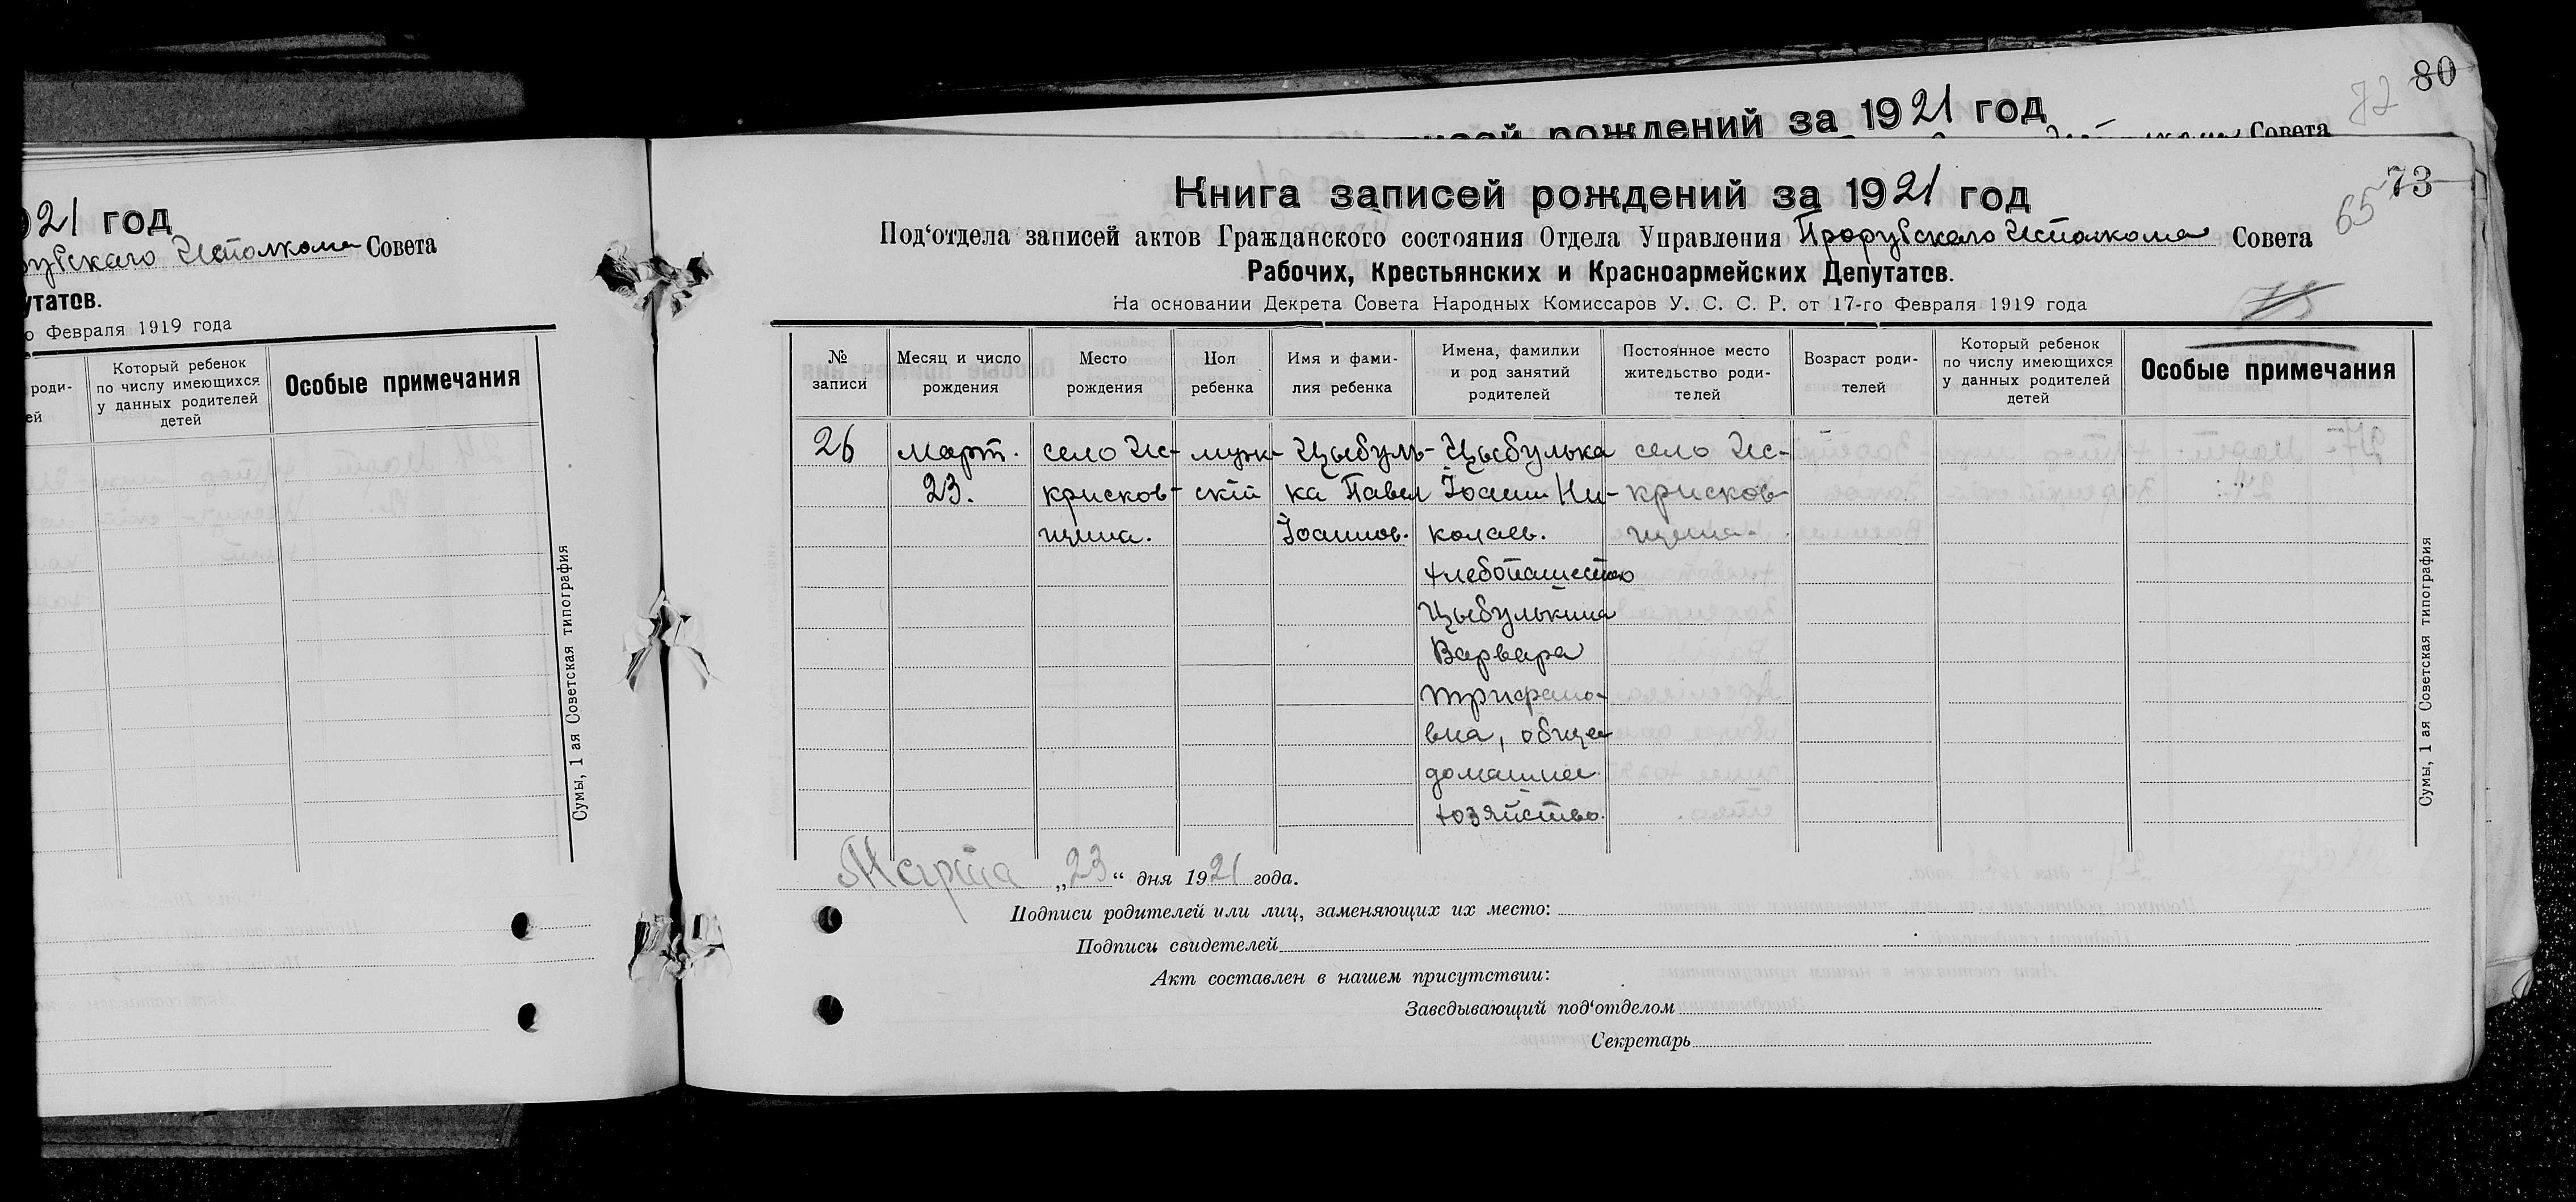 80
72
рождений за 1921 год
Совета
21 год
Исполкома Совета
утатов.
Февраля 1919 года
роди-
ей
Который ребенок
по числу имеющихся
у данных родителей
детей
Особые примечания
Сумы, 1 ая Советская типография
73
65
Книга записей рождений за 1921 год
Под‘отдела записей актов Гражданского состояния Отдела Управления Прорубскаго Исполкома Совета
Рабочих, Крестьянских и Красноармейских Депутатов.
На основании Декрета Совета Народных Комиссаров У. С. С. Р. от 17-го Февраля 1919 года
№
записи
Месяц и число
рождения
Место
рождения
Пол
ребенка
Имя и фами-
лия ребенка
Имена, фамилки
и род занятий
родителей
Постоянное место
жительство роди-
телей
Возраст роди-
телей
Который ребенок
по числу имеющихся
у данных родителей
детей
Особые примечания
26
март.
23.
село Ис-
крисков-
щина.
муж-
скій
Цыбуль-
ка Павел
Іоаннов.
Цыбулька
Іоанн Ни-
колаев.
хлебопашество
Цыбулькина
Варвара
Трифано-
вна, общее
домашнее
хозяйство.
село Ис-
крисков-
щина.
Сумы, 1 ая Советская типография
Марта „23“ дня 1921 года.
Подписи родителей или лиц, заменяющих их место:
Подписи свидетелей
Акт составлен в нашем присутствии:
Заведывающий под‘отделом
Секретарь